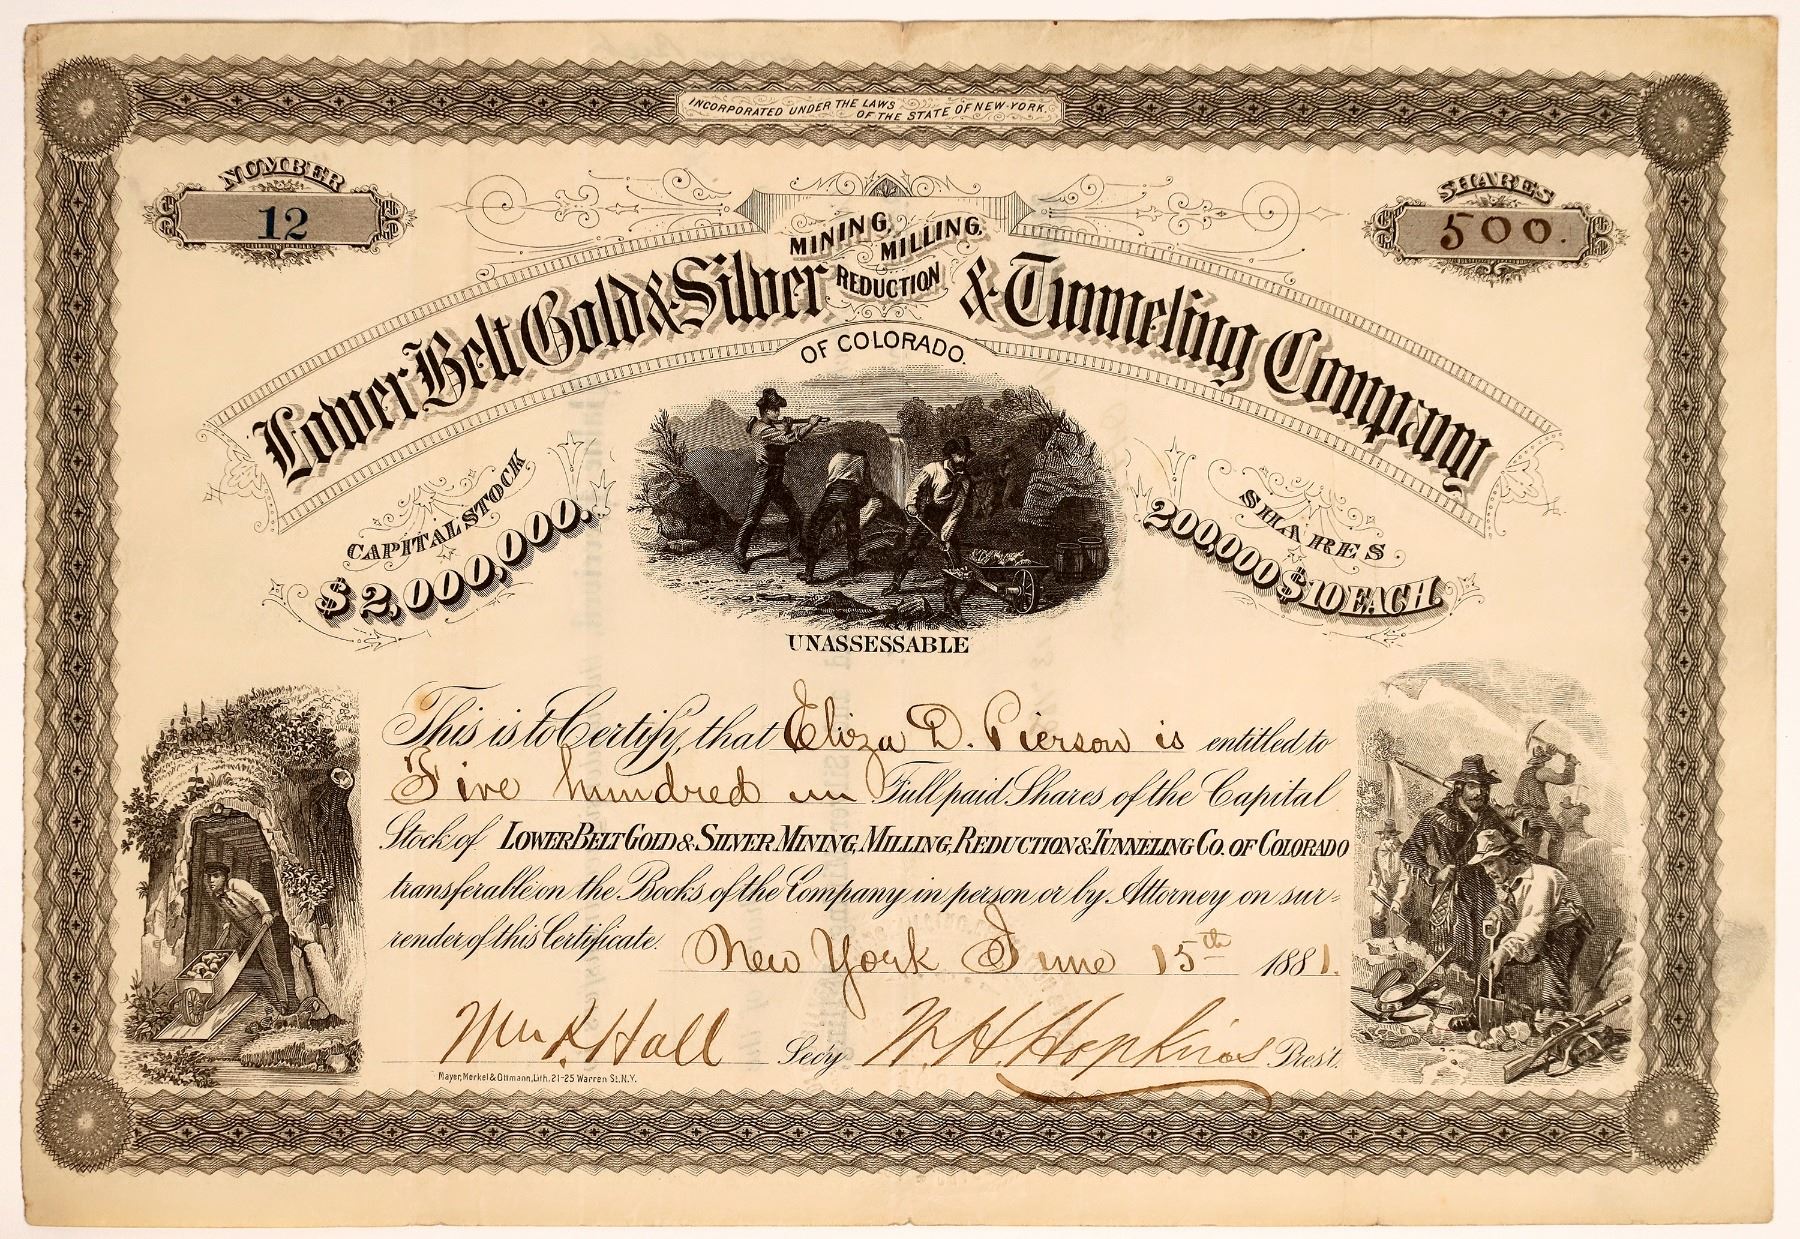 INCORPORATED UNDER THE LAWS OF THE STATE OF NEW-YORK.
NUMBER
12
SHARES
500.
MINING, MILLING,
REDUCTION
Lower Belt Gold & Silver & Tunneling Company
OF COLORADO.
CAPITAL STOCK
$2,000,000.
SHARES
200,000 $10 EACH.
UNASSESSABLE
This is to Certify, that Eliza D. Pierson is entitled to
Five hundred Full paid Shares of the Capital
Stock of LOWER BELT GOLD & SILVER MINING, MILLING, REDUCTION & TUNNELING CO. OF COLORADO
transferable on the Books of the Company in person or by Attorney on sur-
render of this Certificate. New York June 15th 1881.
Hall Secy W. H. Hopkins Prest.
Mayer, Merkel & Ottmann, Lith. 21-25 Warren St. N.Y.